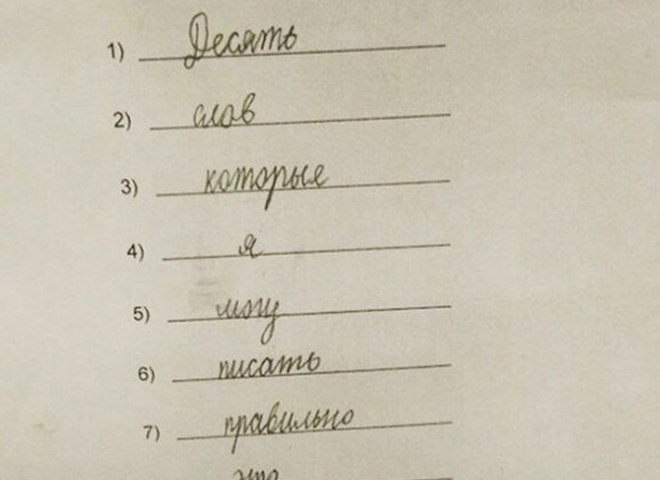 1) Десять
2) слов
3) которые
4) я
5) могу
6) писать
7) правильно
это